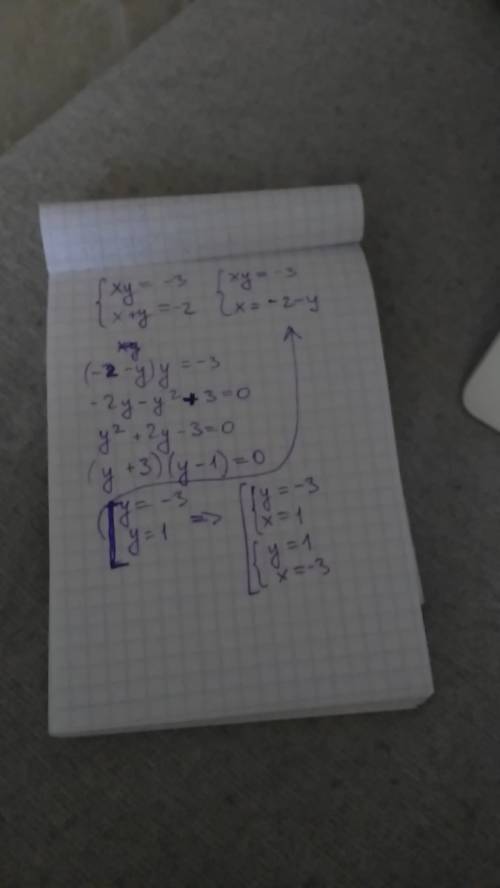 { xy = -3 { xy = -3
{ x+y = -2 { x = -2-y
(-2-y)y = -3
-2y-y²+3=0
y²+2y-3=0
(y+3)(y-1)=0
[ y = -3 => [ { y = -3
[ y = 1 [ { x = 1
[ { y = 1
[ { x = -3